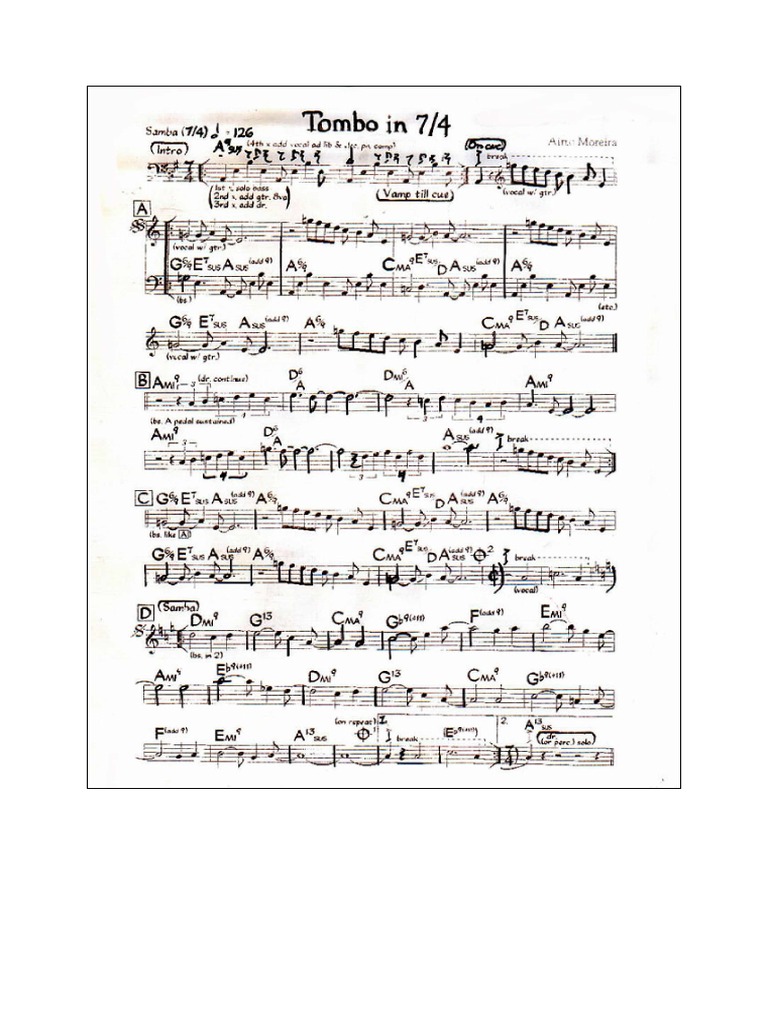 Tombo in 7/4
Samba (7/4) = 126
Airto Moreira
(Intro) A9sus (4th x add vocal ad lib & elec. pn. comp) (On cue) break
1st x, solo bass
2nd x, add gtr. 8va
3rd x, add dr.
(Vamp till cue) (vocal w/ gtr)
A
(vocal w/ gtr.)
G6/9 E7sus Asus(add 9) A6/9 CMA9 E7sus D Asus(add 9) A6/9
(bs.) (etc.)
G6/9 E7sus Asus(add 9) A6/9 CMA9 E7sus D Asus(add 9)
(vocal w/ gtr.)
B AMI9 3 (dr. continue) D6/A DMI6/A AMI9
3 4
(bs. A pedal sustained)
AMI9 D6/A Asus(add 9) break
3 4 3 4
C G6/9 E7sus Asus(add 9) A6/9 CMA9 E7sus D Asus(add 9) A6/9
(bs. like A)
G6/9 E7sus Asus(add 9) A6/9 CMA9 E7sus D Asus(add 9) 2 break
(vocal)
D (Samba) DMI9 G13 CMA9 Gb9(+11) F(add 9) EMI9
(bs. in 2)
AMI9 Eb9(+11) DMI9 G13 CMA9 Gb9(+11)
F(add 9) EMI9 A13sus (on repeat) 1 1. break (Eb9(+11)) 2. A13sus
dr.
(or perc.) solo)
7/4